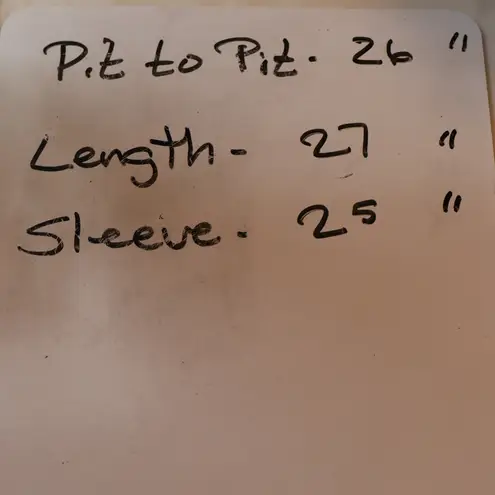 Pit to Pit. 26 "
Length - 27 "
Sleeve. 25 "